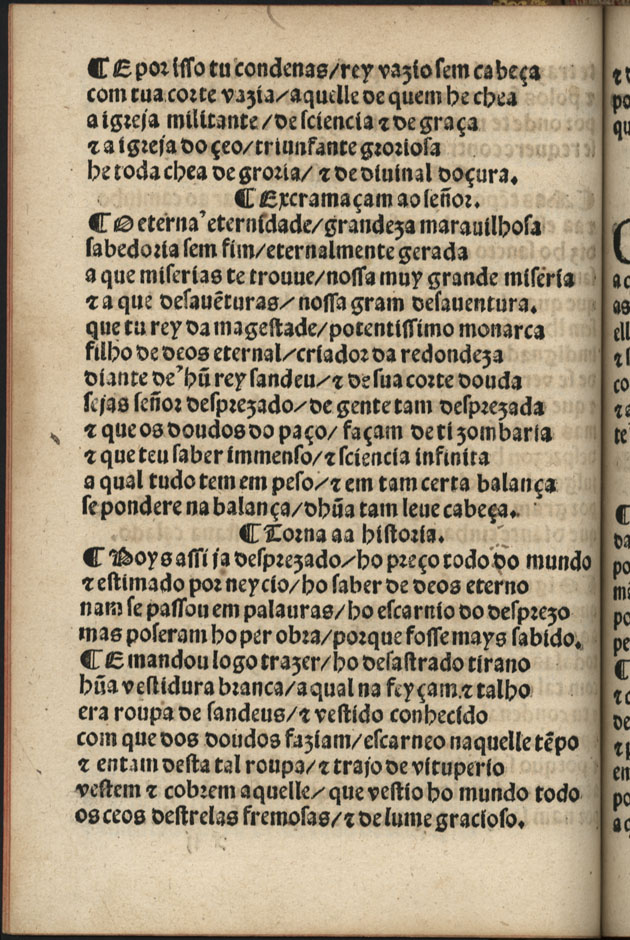 ¶ E por isso tu condenas/rey vazio sem cabeça
com tua corte vazia/aquelle de quem he chea
a igreja militante/de sciencia ⁊ de graça
⁊ a igreja do çeo/triunfante groriosa
he toda chea de groria/ ⁊ de divinal doçura.
¶ Excramaçam ao señor.
¶ O eterna eternidade/grandeza marauilhosa
sabedoria sem fim/eternalmente gerada
a que miserias te trouue/nossa muy grande miseria
⁊ a que desauẽturas/ nossa gram desauentura.
que tu rey da magestade/potentissimo monarca
filho de deos eternal/criador da redondeza
diante de hũ rey sandeu/⁊ de sua corte douda
sejas señor desprezado/de gente tam desprezada
⁊ que os doudos do paço/ façam de ti zombaria
⁊ que teu saber immenso/⁊ sciencia infinita
a qual tudo tem em peso/⁊ em tam certa balança
se pondere na balança/dhũa tam leue cabeça.
¶ Torna aa historia.
¶ Poys assi ja desprezado/ho preço todo do mundo
⁊ estimado por neycio/ho saber de deos eterno
nam se passou em palauras/ho escarnio do desprezo
mas poseram ho per obra/porque fosse mays sabido.
¶ E mandou logo trazer/ho desastrado tirano
hũa vestidura branca/a qual na feyçam ⁊ talho
era roupa de sandeus/⁊ vestido conhecido
com que dos doudos faziam/escarneo naquelle tẽpo
⁊ entam desta tal roupa/⁊ trajo de vituperio
vestem ⁊ cobrem aquelle/que vestio ho mundo todo
os ceos destrelas fremosas/⁊ de lume gracioso.